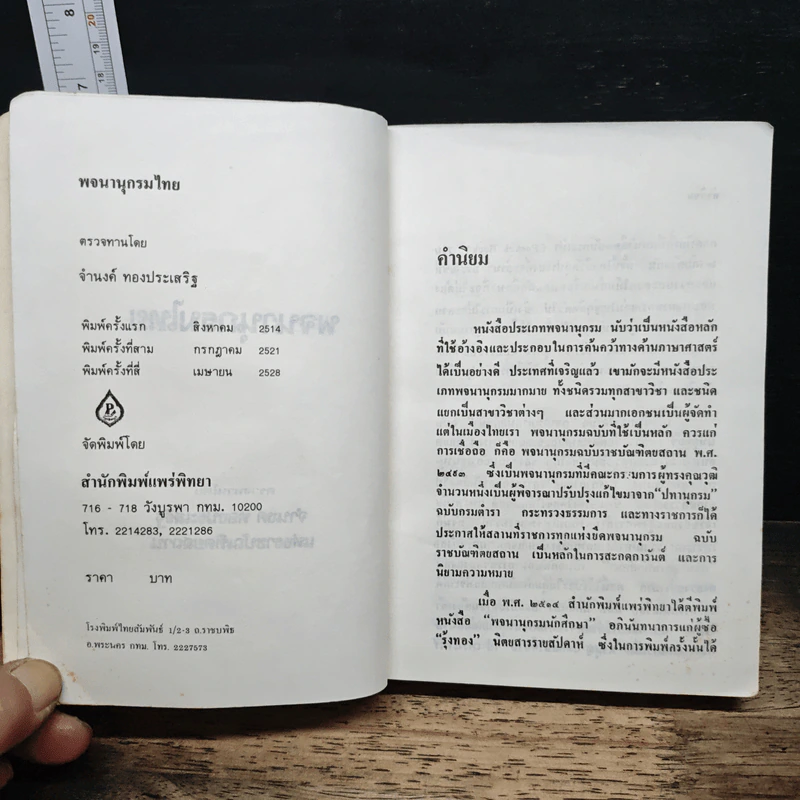 8
20
19
7
18
พจนานุกรมไทย
ตรวจทานโดย
จำนงค์ ทองประเสริฐ
พิมพ์ครั้งแรก สิงหาคม 2514
พิมพ์ครั้งที่สาม กรกฎาคม 2521
พิมพ์ครั้งที่สี่ เมษายน 2528
P
จัดพิมพ์โดย
สำนักพิมพ์แพร่พิทยา
716 - 718 วังบูรพา กทม. 10200
โทร. 2214283, 2221286
ราคา บาท
โรงพิมพ์ไทยสัมพันธ์ 1/2-3 ถ.ราชบพิธ
อ.พระนคร กทม. โทร. 2227573
คำนิยม
หนังสือประเภทพจนานุกรม นับว่าเป็นหนังสือหลัก
ที่ใช้อ้างอิงและประกอบในการค้นคว้าทางด้านภาษาศาสตร์
ได้เป็นอย่างดี ประเทศที่เจริญแล้ว เขามักจะมีหนังสือประ
เภทพจนานุกรมมากมาย ทั้งชนิดรวมทุกสาขาวิชา และชนิด
แยกเป็นสาขาวิชาต่างๆ และส่วนมากเอกชนเป็นผู้จัดทำ
แต่ในเมืองไทยเรา พจนานุกรมฉบับที่ใช้เป็นหลัก ควรแก่
การเชื่อถือ ก็คือ พจนานุกรมฉบับราชบัณฑิตยสถาน พ.ศ.
๒๔๙๓ ซึ่งเป็นพจนานุกรมที่มีคณะกรรมการผู้ทรงคุณวุฒิ
จำนวนหนึ่งเป็นผู้พิจารณาปรับปรุงแก้ไขมาจาก“ปทานุกรม”
ฉบับกรมตำรา กระทรวงธรรมการ และทางราชการก็ได้
ประกาศให้สถานที่ราชการทุกแห่งยึดพจนานุกรม ฉบับ
ราชบัณฑิตยสถาน เป็นหลักในการสะกดการันต์ และการ
นิยามความหมาย
เมื่อ พ.ศ. ๒๕๑๔ สำนักพิมพ์แพร่พิทยาได้ตีพิมพ์
หนังสือ “พจนานุกรมนักศึกษา” อภินันทนาการแก่ผู้ซื้อ
“รุ้งทอง” นิตยสารรายสัปดาห์ ซึ่งในการพิมพ์ครั้งนั้นได้